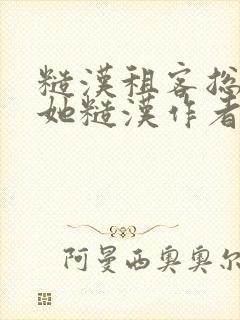 糙漢租客捴
她糙漢作者
阿曼西奥奥尔